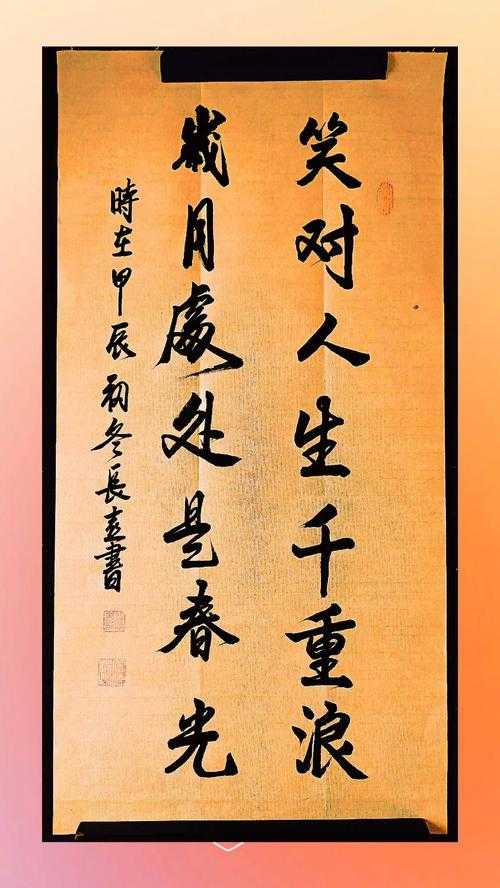 笑对人生千重浪
歲月處处是春光
時在甲辰初冬長喜書